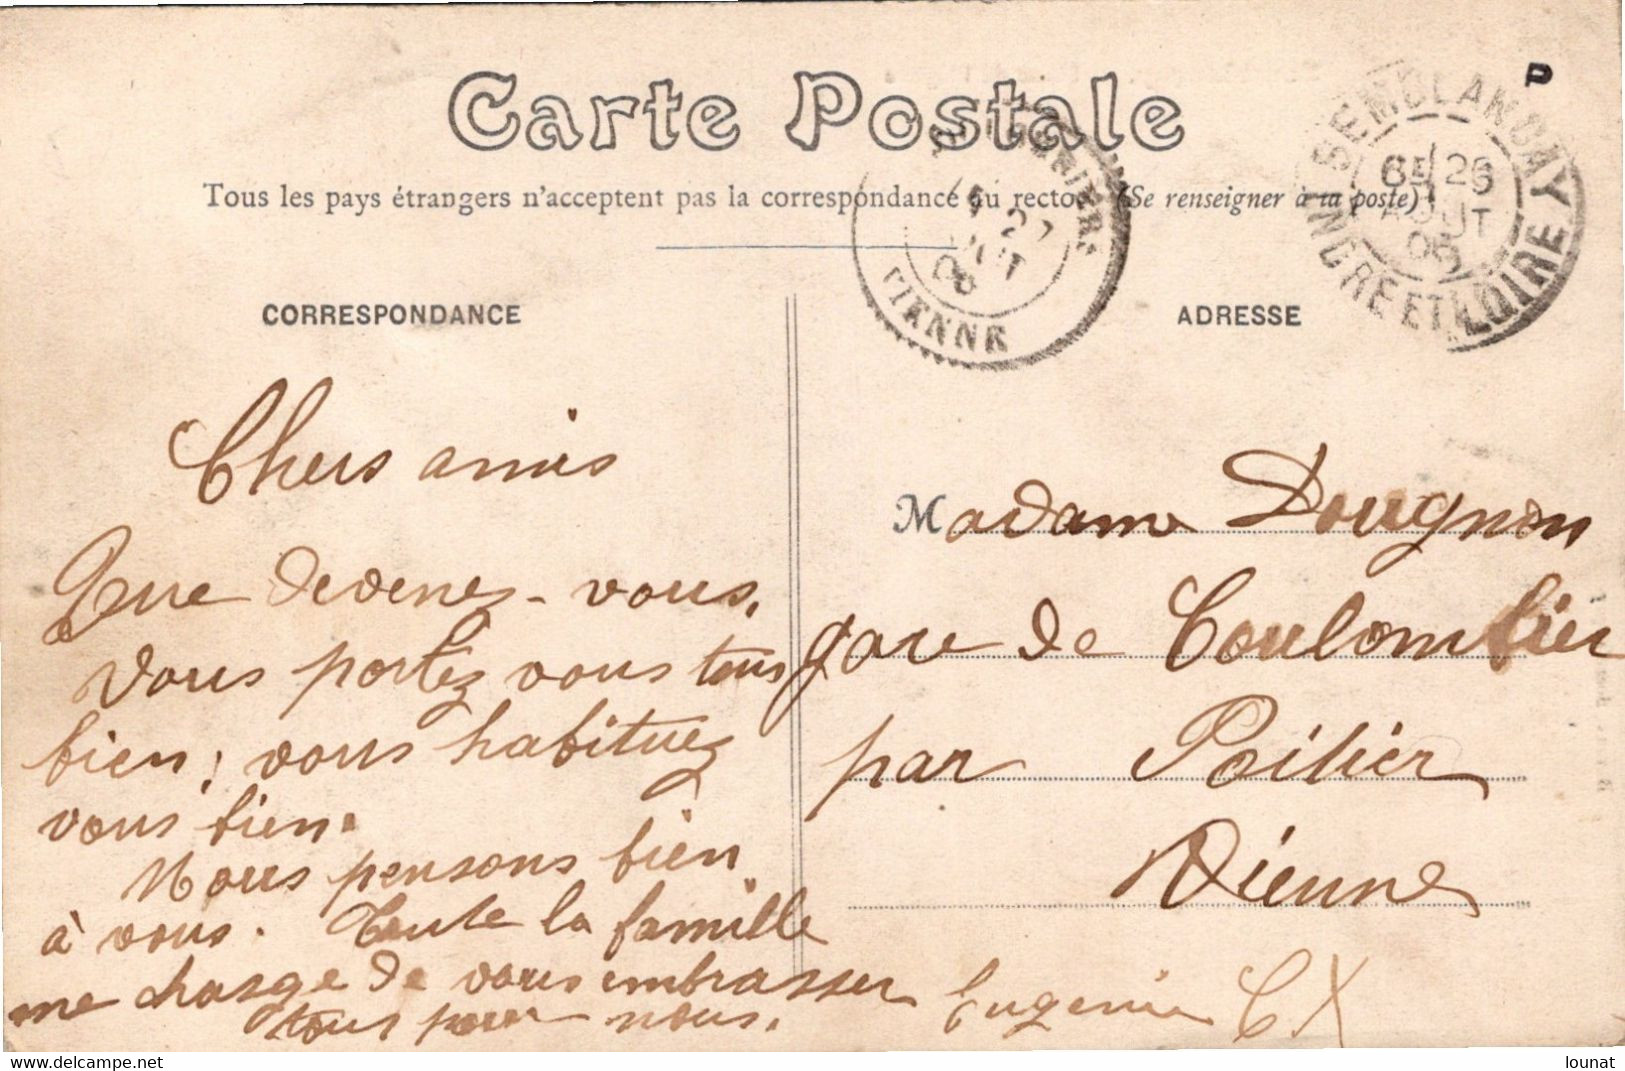 Carte Postale
Tous les pays étrangers n'acceptent pas la correspondance au recto (Se renseigner à la poste)
SEMBLANCAY
6E 26
AOUT
06
INDRE ET LOIRE
27
AOUT
06
VIENNE
CORRESPONDANCE
ADRESSE
Chers amis
Que devenez-vous,
Vous portez vous tous
bien; vous habituez
vous bien.
Nous pensons bien
à vous. Toute la famille
me charge de vous embrasser
tous pour nous.
Eugenie C X
Madame Dougnon
gare de Coulombier
par Poitier
Vienne
delcampe.net
lounat